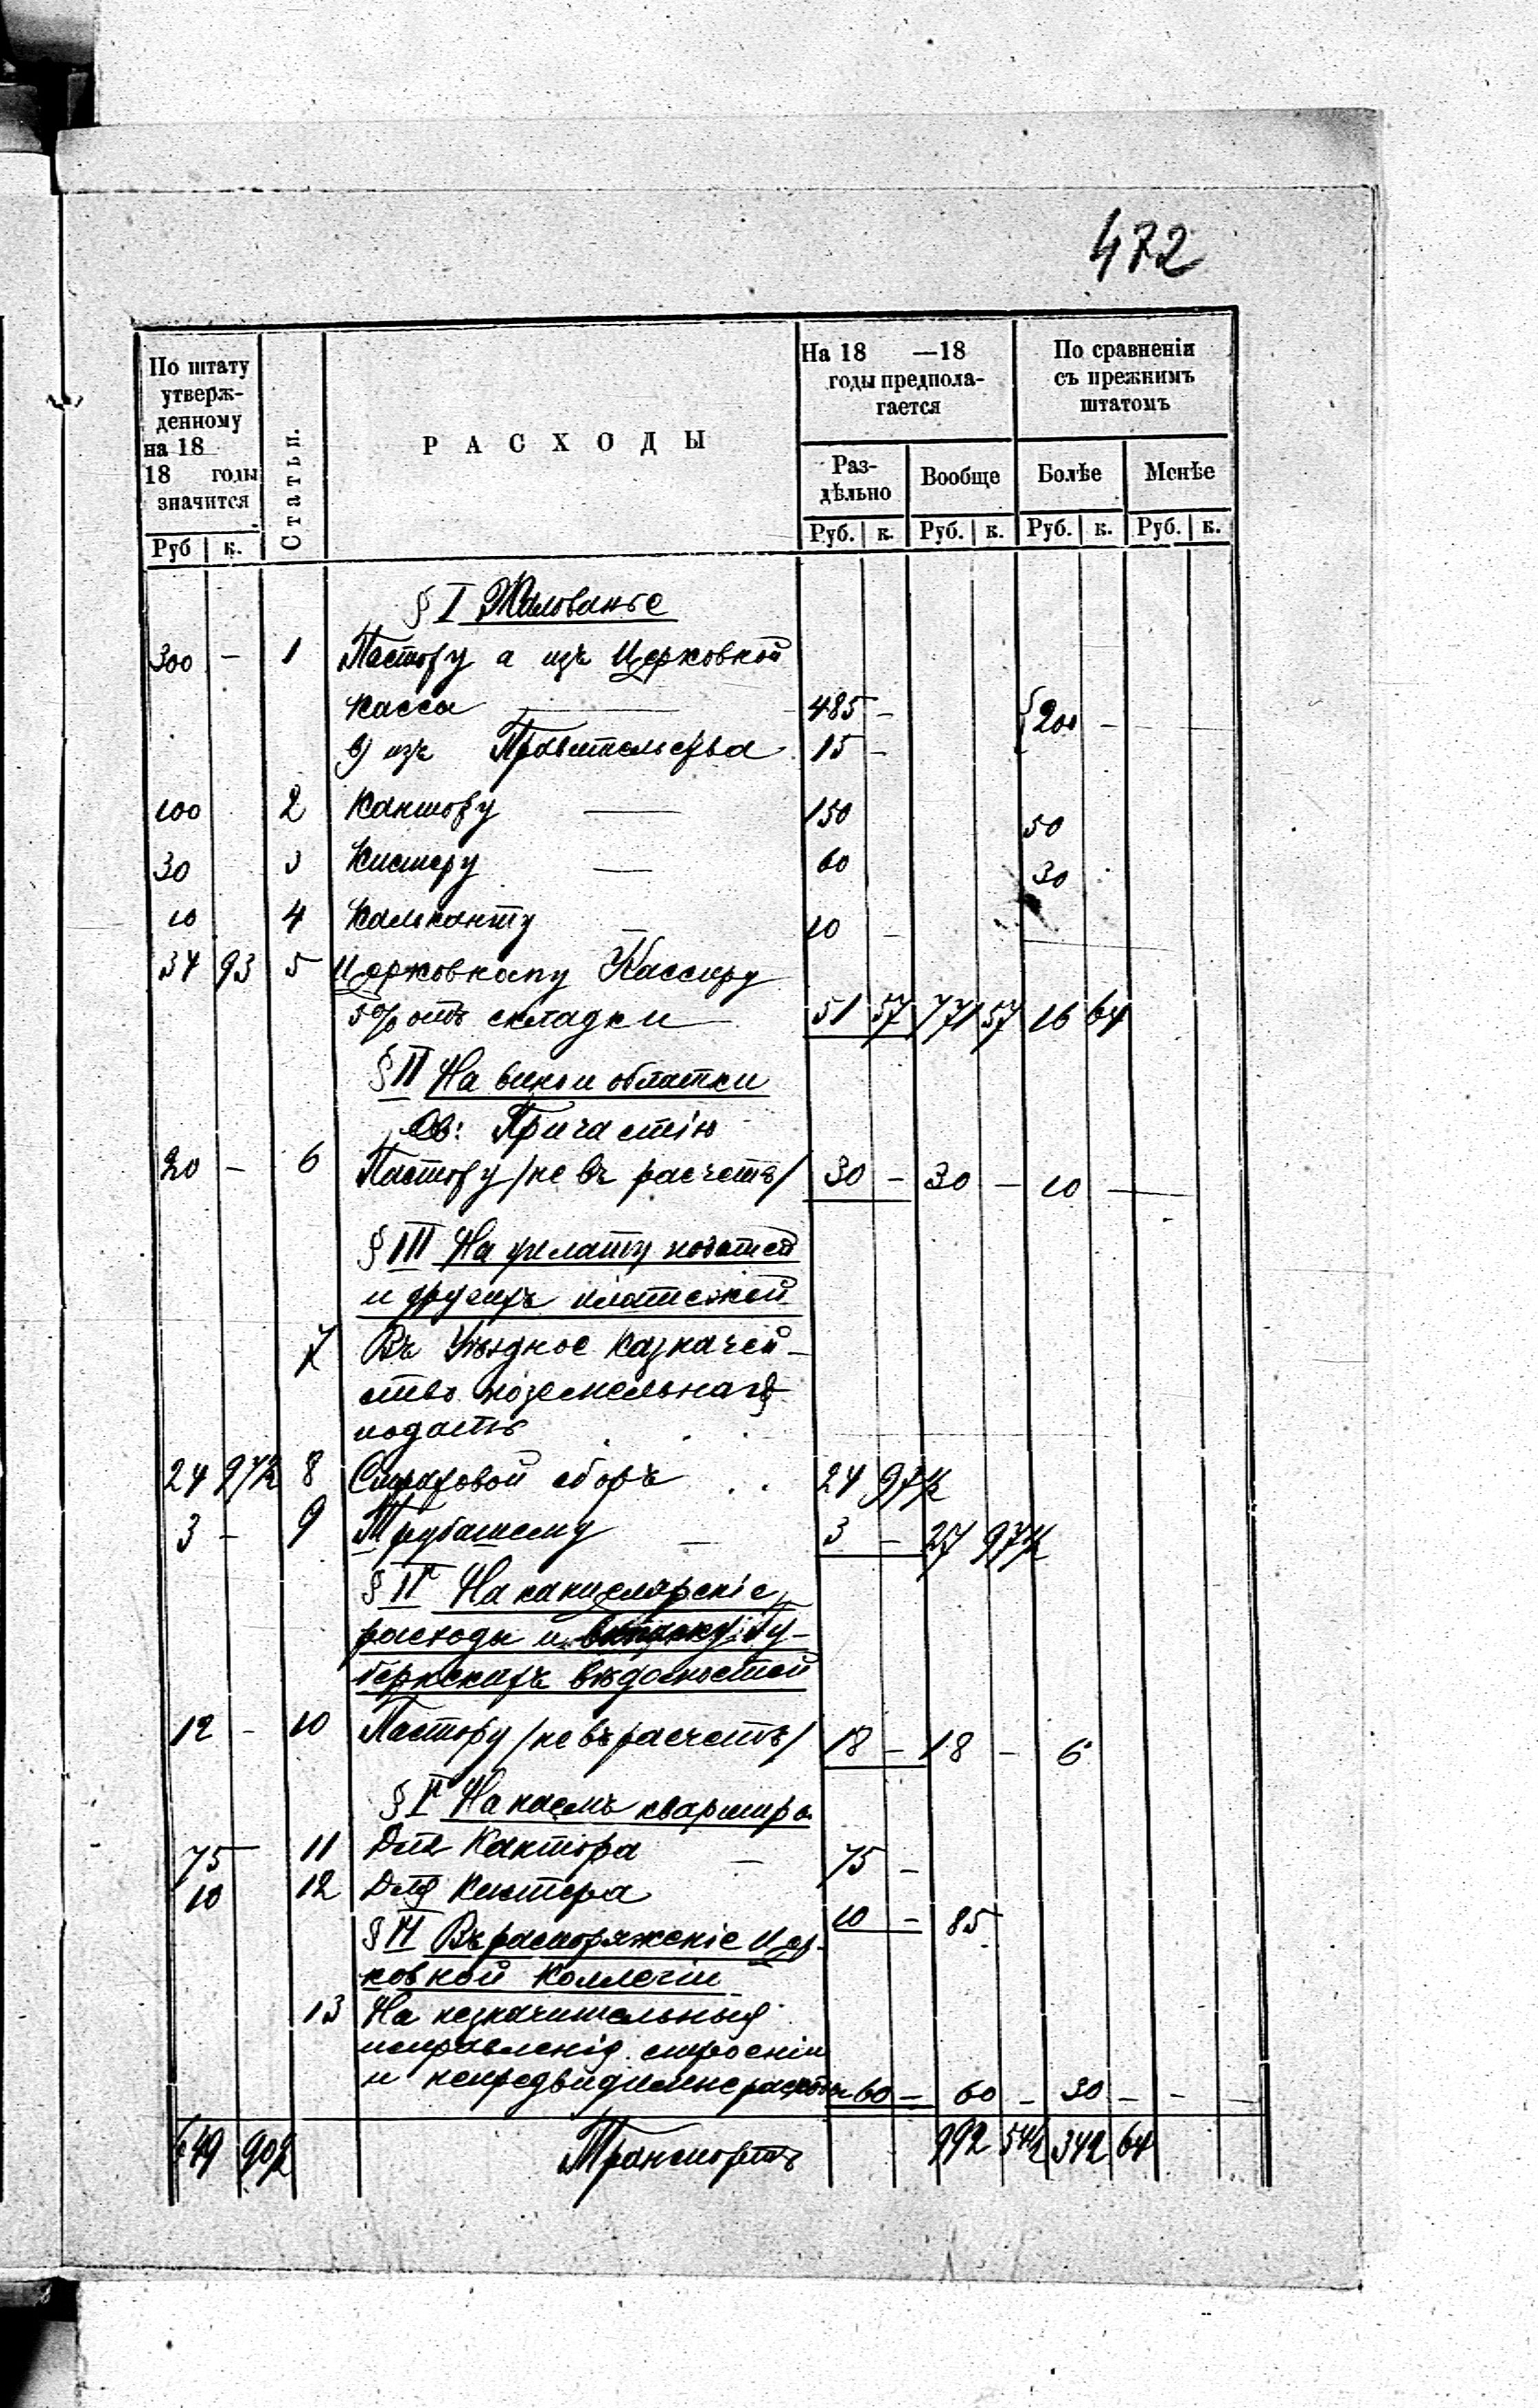 472
По штату утвержденному на 18 18 годы значится
Статьи.
РАСХОДЫ
На 18 —18 годы предполагается
По сравненіи съ прежнимъ штатомъ
Раздѣльно
Вообще
Болѣе
Менѣе
Руб к.
Руб. к. Руб. к. Руб. к. Руб. к.
§ I Жалованье
300 — 1 Пастору а изъ Церковной
кассы — 485 — {200 —
в) изъ Правительства 15 —
100 2 Кантору — 150 50
30 3 Кистеру — 60 30
10 4 Кальканту — 10 —
34 93 5 Церковному Кассиру
5% отъ складки 51 57 771 57 16 64
§ II На вино и облатки
Св: Причастію
20 — 6 Пастору /не въ расчетъ/ 30 — 30 — 10 —
§ III На уплату податей
и другихъ платежей
7 Въ Уѣздное Казначей-
ство поземельная
подать . . .
24 97½ 8 Страховой сборъ . . 24 97½
3 — 9 Трубашему — 3 — 27 97½
§ IV На канцелярскіе
расходы и Гу-
бернскихъ вѣдомостей
12 — 10 Пастору /не въ расчетъ/ 18 — 18 — 6
§ V На наемъ квартиръ
75 11 Для Кантора — 75 —
10 12 Для Кистера 10 — 85
§ VI Въ распоряженіе Цер-
ковной Коллегіи
13 На незначительныя
исправленія строеніи
и непредвидимые расходы 60 — 60 — 30 — —
649 90½ Транспортъ 992 54½ 342 64